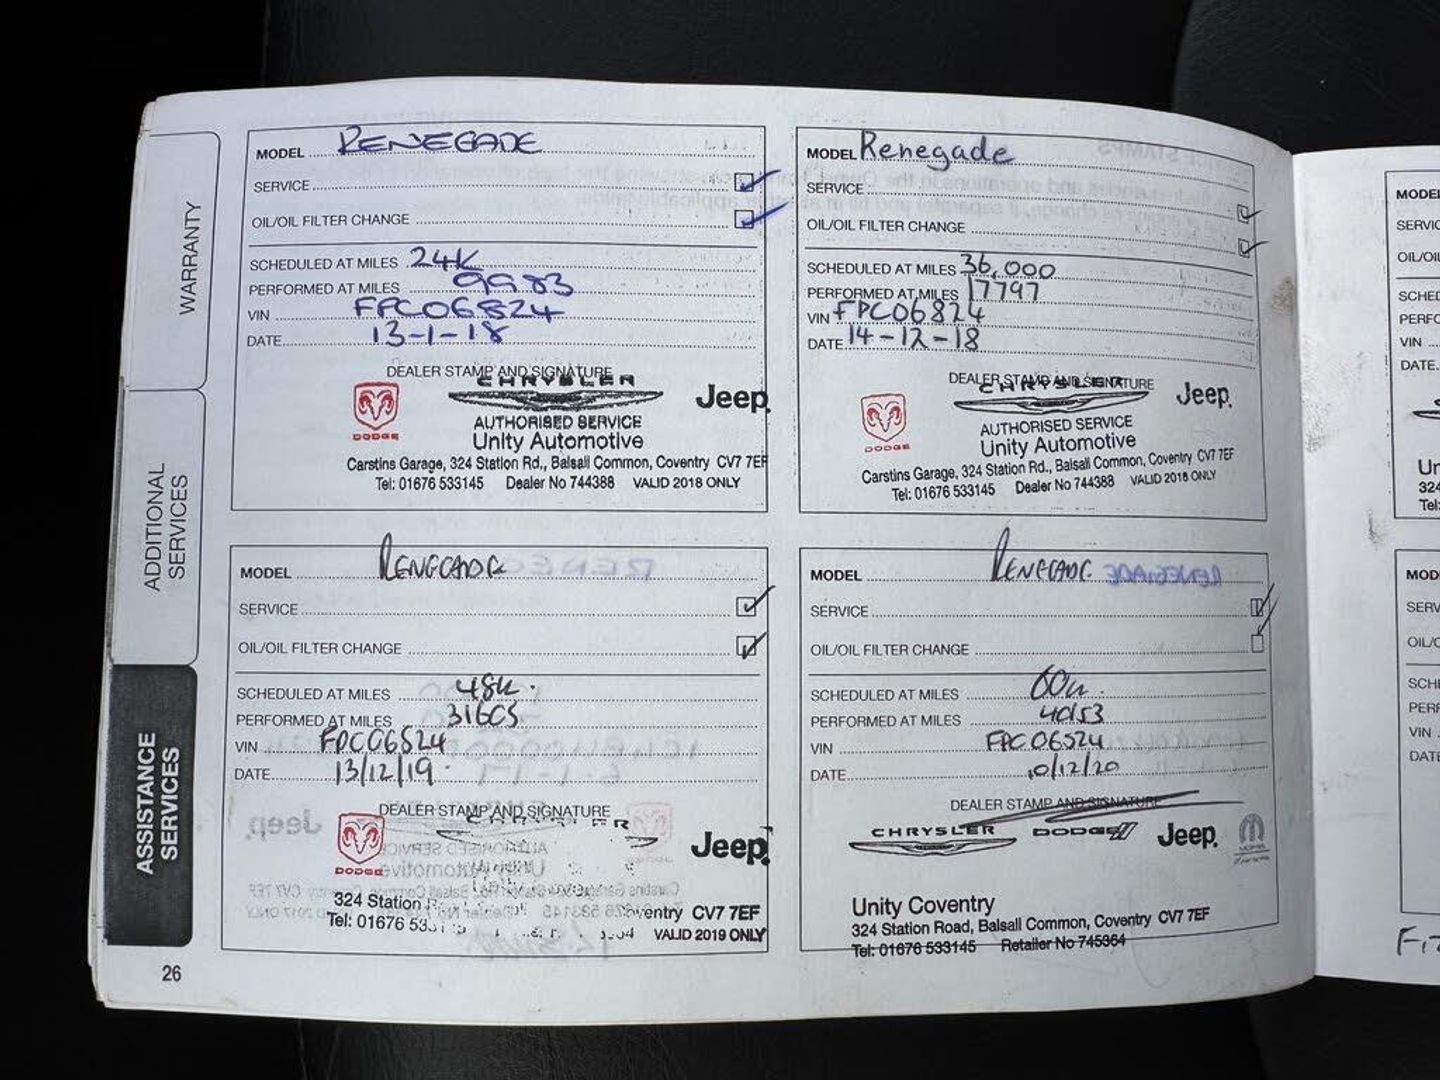 WARRANTY
ADDITIONAL
SERVICES
ASSISTANCE
SERVICES
MODEL RENEGADE
SERVICE
OIL/OIL FILTER CHANGE
SCHEDULED AT MILES 24K
PERFORMED AT MILES 9983
VIN FPC06824
DATE 13-1-18
DEALER STAMP AND SIGNATURE
CHRYSLER
DODGE
Jeep
AUTHORISED SERVICE
Unity Automotive
Carstins Garage, 324 Station Rd., Balsall Common, Coventry CV7 7EF
Tel: 01676 533145 Dealer No 744388 VALID 2018 ONLY
MODEL Renegade
SERVICE
OIL/OIL FILTER CHANGE
SCHEDULED AT MILES 36,000
PERFORMED AT MILES 17797
VIN FPC06824
DATE 14-12-18
DEALER STAMP AND SIGNATURE
CHRYSLER
DODGE
Jeep
AUTHORISED SERVICE
Unity Automotive
Carstins Garage, 324 Station Rd., Balsall Common, Coventry CV7 7EF
Tel: 01676 533145 Dealer No 744388 VALID 2018 ONLY
MODEL RENEGADE
SERVICE
OIL/OIL FILTER CHANGE
SCHEDULED AT MILES 48K
PERFORMED AT MILES 31605
VIN FPC06824
DATE 13/12/19
DEALER STAMP AND SIGNATURE
DODGE
Jeep
324 Station CV7 7EF
Tel: 01676 VALID 2019 ONLY
MODEL RENEGADE
SERVICE
OIL/OIL FILTER CHANGE
SCHEDULED AT MILES 60K
PERFORMED AT MILES 40153
VIN FPC06824
DATE 10/12/20
DEALER STAMP AND SIGNATURE
CHRYSLER DODGE Jeep
Unity Coventry
324 Station Road, Balsall Common, Coventry CV7 7EF
Tel: 01676 533145 Retailer No 745364
26
MODEL
VIN
DATE
324
Tel:
VIN